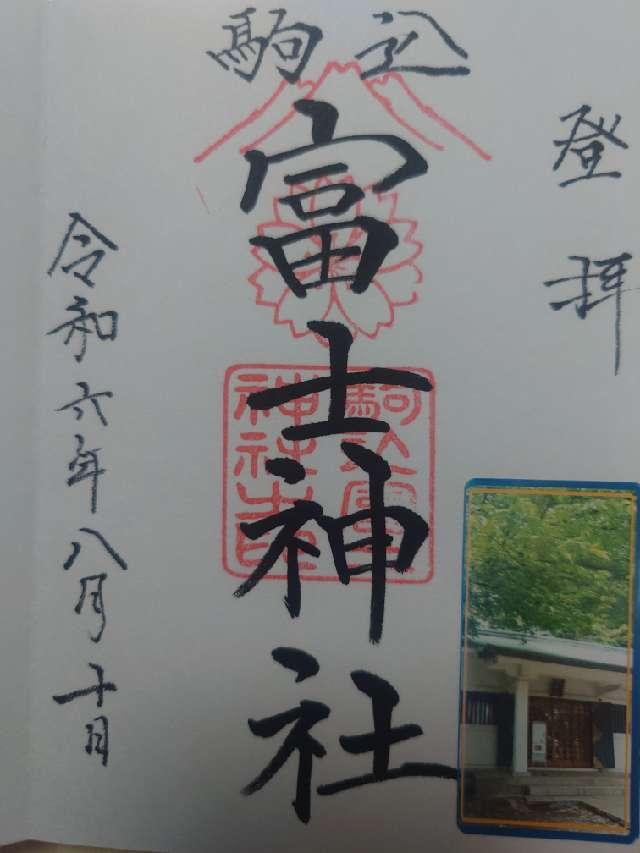 登拝
駒込
富士神社
駒込富士
神社
令和六年八月十日